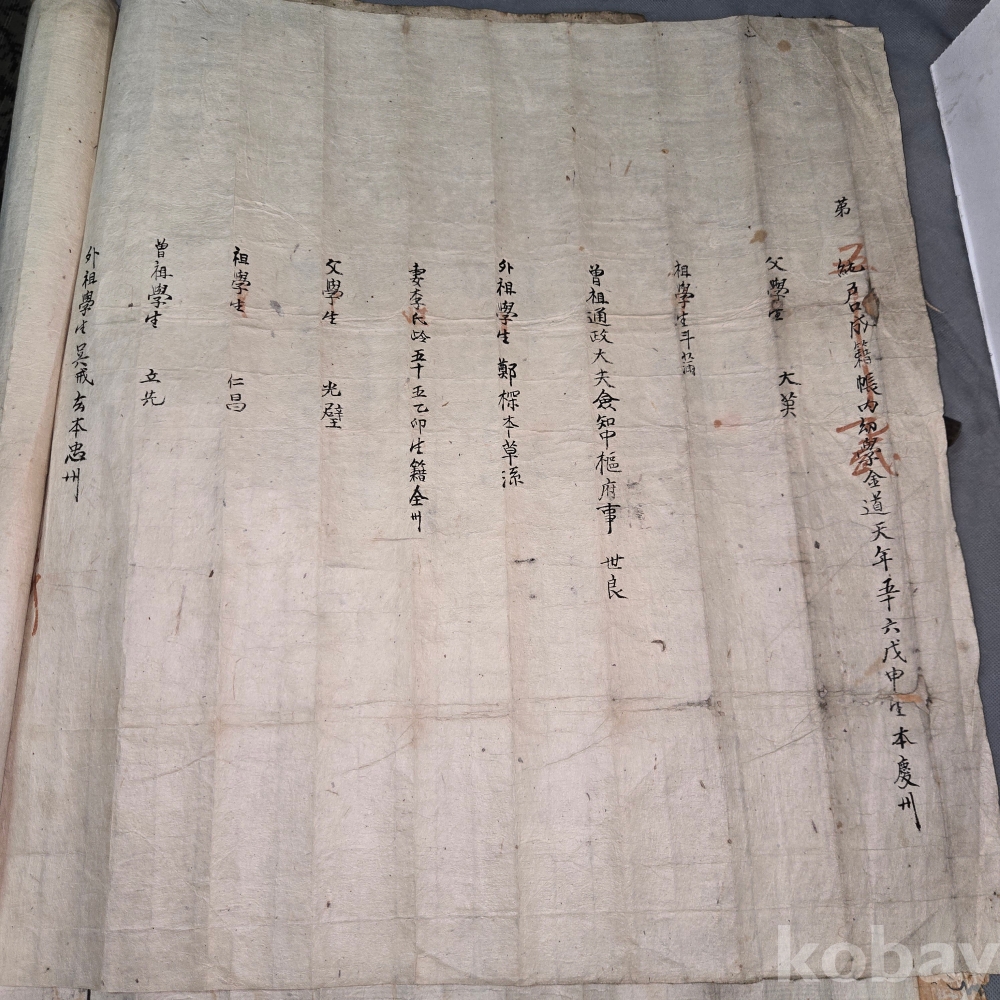 第 統戶口成籍帳內幼學金道天年五十六戊申生本慶州
父學生 大英
祖學生斗滿
曾祖通政大夫僉知中樞府事 世良
外祖學生 鄭 本草溪
妻李氏齡五十五乙卯生籍全州
父學生 光璧
祖學生 仁昌
曾祖學生 立先
外祖學生吳戒吉本忠州
kobay